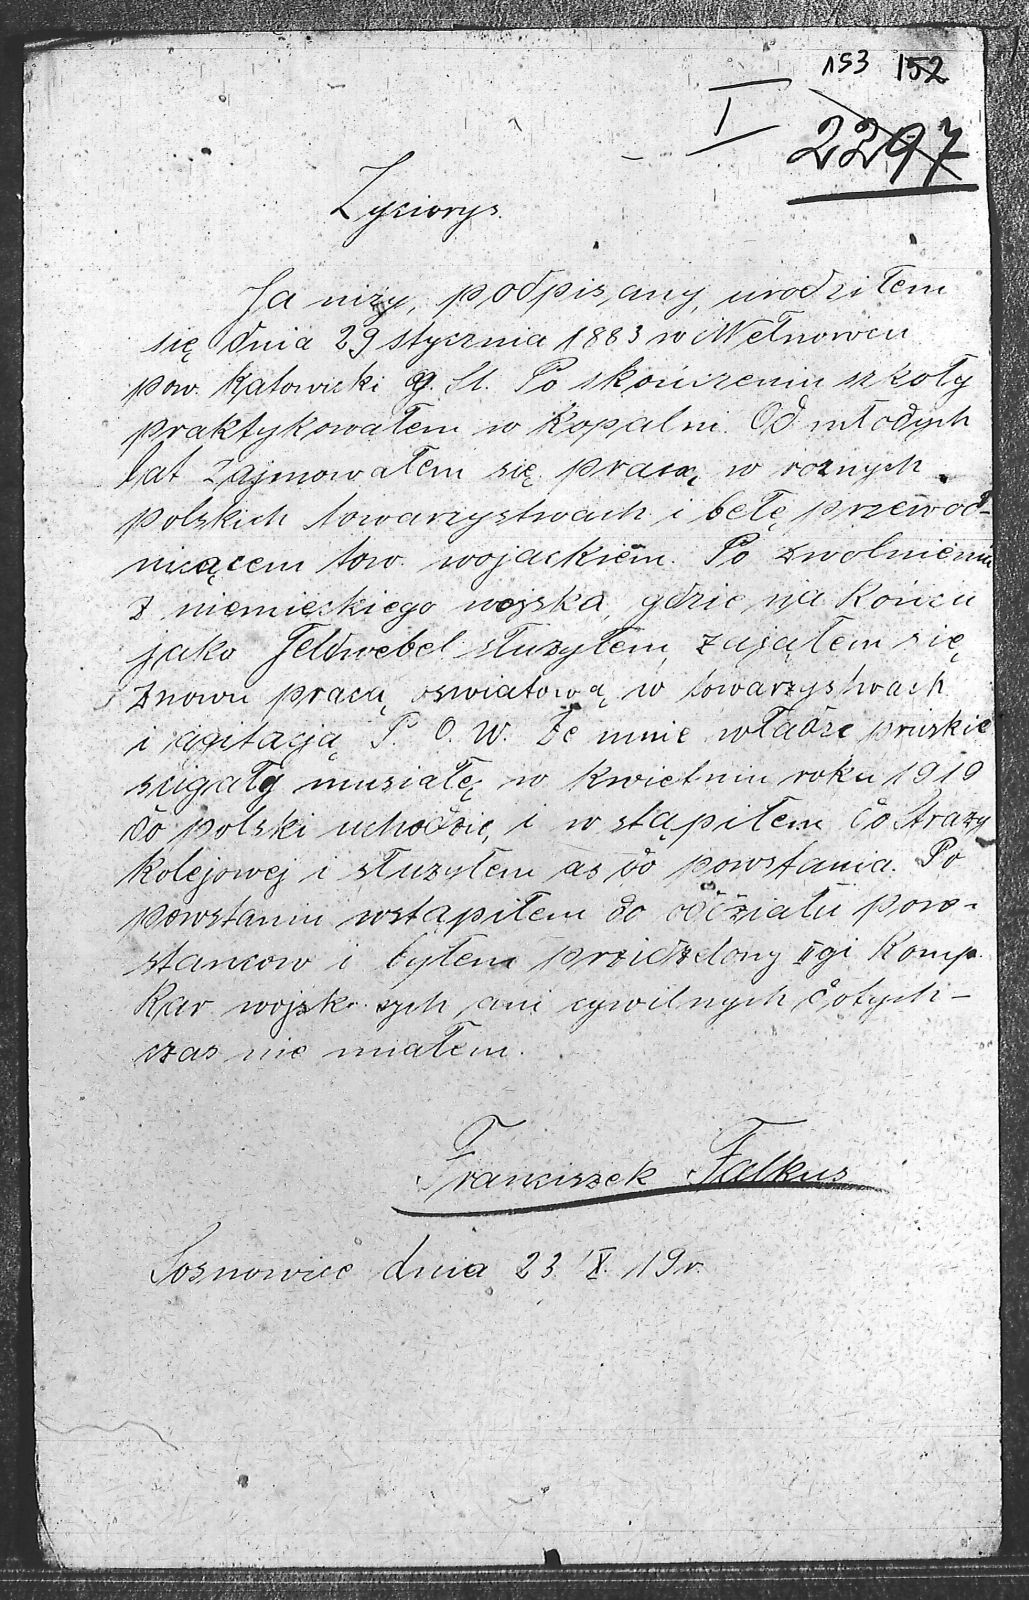 153 152
I
2297
Zyciorys.
Ja nizy, podpisany, urodziłem
się dnia 29 stycznia 1883 w Wełnowcu
pow. Katowicki g. Sl. Po skończeniu szkoły
praktykowałem w Kopalni. Od młodych
lat zajmowałem się pracą w roznych
polskich towarzystwach i belę przewod-
nicącem tow. wojackiem. Po zwolnieniu
z niemieckiego wojska, gdzie na Końcu
jako Feldwebel służyłem, zająłem się
znowu pracą oswiatową w towarzystwach
i agitacją P. O. W. Ze mnie władze pruskie
scigały musiałę w kwietniu roku 1919
do polski uchodzić, i wstąpiłem do Strazy
Kolejowej i służyłem as do powstania. Po
powstaniu wstąpiłem do oddziału pow-
stancow i byłem przidzelony II gi Komp.
Kar wojsk. zych ani cywilnych dotych-
czas nie miałem.
Franciszek Falkus
Sosnowiec dnia 23 X. 19 r.